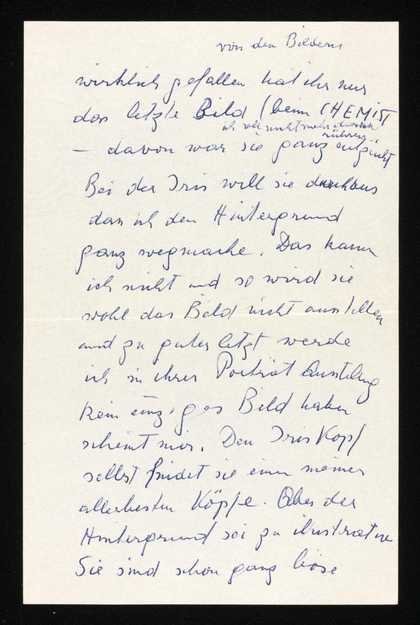 von den Bildern
wirklich gefallen hat ihr nur
das letzte Bild (beim CHEMIST
ich nicht mehr
– davon war sie ganz entzückt
Bei der Iris will sie durchaus
dass ich den Hintergrund
ganz wegmache. Das kann
ich nicht und so wird sie
wohl das Bild nicht ausstellen
und zu guter letzt werde
ich in ihrer Porträt Austellung
kein einziges Bild haben
scheint mir. Den Iris Kopf
selbst findet sie einen meiner
allerbesten Köpfe. Aber der
Hintergrund sei zu ilustrative
Sie sind schon ganz böse